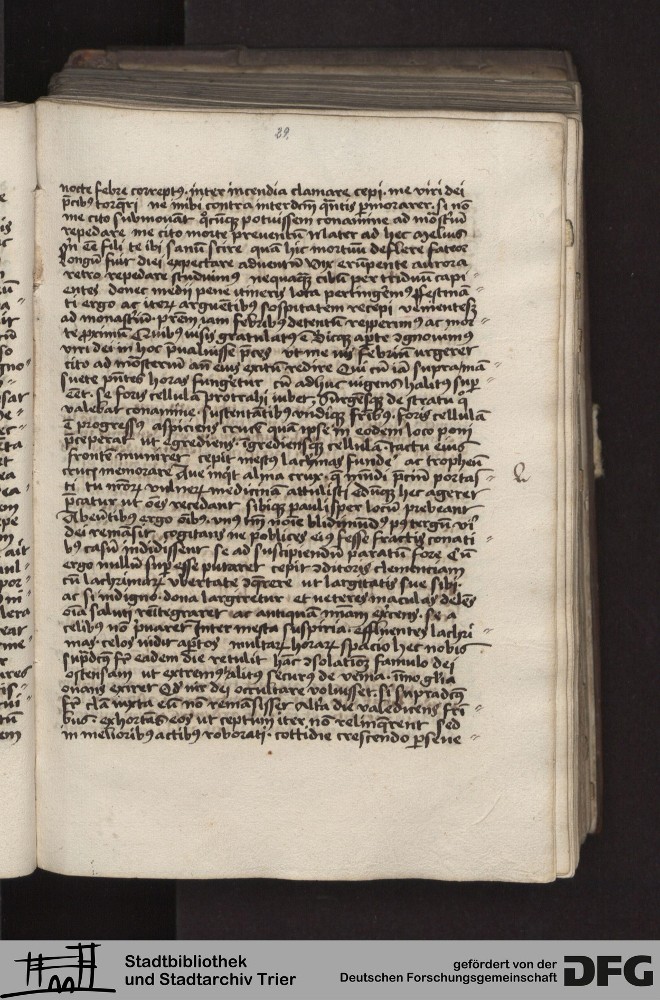 29.
nocte febre correptꝰ. inter incendia clamare cepi. me viri dei
p̄cibꝰ torq̄ri ne mihi contra interdcm̄ q̄ntis ꝑmorarer. si nō
me cito submouāt q̊cūqꝫ potuissem conamine ad mōstiū
repedare me cito morte preuentū Nlater ad hec azelius
In ēē fili te ibi sanū scire quā hic mortuū deflere fateor
Longū fuit diei expectare aduentū Vix erūpente aurora
retro repedare studuimꝰ nequaqꝫ cibū per triduū capi
entes donec medii pene itineris loca pertingemꝰ ꝓfestinā
ti ergo ac iteꝝ arguētibꝰ sospitatem recepi
ad monastiū. p̄rem iam febribꝰ detentū repperimꝰ ac mor
te ꝓximū Quibꝰ uisis gratulatꝰ ē Dicqꝫ aꝑte ꝯgnouimꝰ
viri dei in hoc p̄ualuisse p̄ces ut me
cito ad mōsterīū an̄ eiꝰ exitū redire Qui cū iā supramā
suete pn̄tes horas fungetur cū adhuc uigens halitꝰ suꝑ
eēt. se foris cellulā protrahi iubet. Surgensqꝫ de stratu q̊
valebat conamine. sustentātibꝰ vndiqꝫ fr̄ibꝰ. foris cellulā
ē progressꝰ aspiciens crucē quā ipse in eodem loco poni
p̄ceperat ut egrediens. īgrediensqꝫ cellulā. tactu eius
fronte muniret cepit mestꝰ lachrimas funde ac tropheū
crucis memorare Aue inq̄t alma crux. q̄ mūdi p̄ciū portas
ti tu nr̄oꝝ vulneꝝ medicinā attulisti
p̄catur ut oēs recedant sibiqꝫ paulisper locū prebeant
Abeūtibꝰ ergo oībꝰ. vnꝰ tm̄ noīe blidmūdꝰ pꝰ tergū vi
dei remāsit. cogitans ne poblices eiꝰ fesse fractis conati
bꝰ casū indidissent se ad suscipiendū paratū fore Cū
ergo nullū suꝑesse putaret cepit ꝯditoris clementiam
cū lachrimaꝝ vbertate ꝯq̄rere ut largitatis sue sibi
ac si indigno. dona largiretur et veteres maculas delēs
oīa saluti reītegraret ac antiquā
celibꝰ nō p̄uaret Inter mesta suspiria. effluentes lachri
mas. celos uidit aptos multaꝝ horaꝝ spacio hec nobis
supdcūs fr̄ eadem die retulit hāc ꝯsolatiōꝫ famulo dei
ostensam ut extremꝰ alitꝰ securꝰ de venia. īmo gl̄ia
ouans exiret Qd̄ vir dei occultare voluisset. si supradcꝰ
fr̄ clā iuxta eū nō remāsisset Alia die valedicens fr̄i
bus. exhortās eos ut ceptum iter nō relinq̄rent sed
in melioribꝰ actibꝰ roborati. cottidie crescendo ꝑseue
Stadtbibliothek
und Stadtarchiv Trier
gefördert von der
Deutschen Forschungsgemeinschaft
DFG